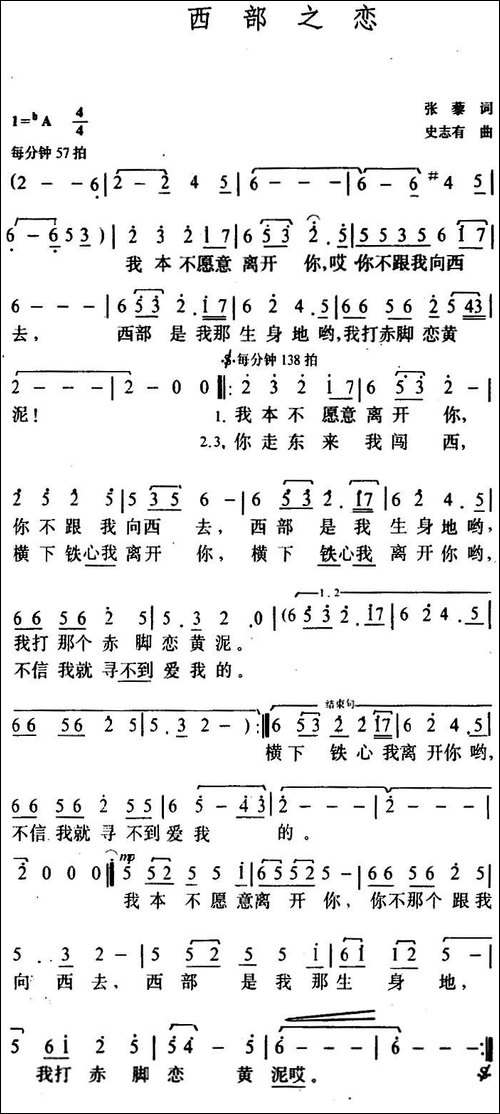 西部之恋
1=ᵇA 4/4
张藜 词
史志有 曲
每分钟57拍
(2 - - 6 | 2 - 2 4 5 | 6 - - - | 6 - - 6 #4 5 |
6 - 6 5 3 ) | 2 3 2 1 7 | 6 5 3 2 . 5 | 5 5 3 5 6 1 7 |
我本不愿意离开 你,哎 你不跟我向西
6 - - - | 6 5 3 2 . 1 7 | 6 2 4 . 5 | 6 6 5 6 2 5 4 3 |
去, 西部 是我那生身地哟,我打赤脚恋黄
𝄋 每分钟138拍
2 - - - | 2 - 0 0 ‖: 2 3 2 1 7 | 6 5 3 2 - |
泥! 1. 我本不 愿意离开 你,
2.3. 你走东 来 我闯 西,
2 5 2 5 | 5 3 5 6 - | 6 5 3 2 . 1 7 | 6 2 4 . 5 |
你不跟 我向西 去, 西部 是我 生身地哟,
横下铁心我离开 你, 横下 铁心我 离开你哟,
1.2.
6 6 5 6 2 5 | 5 . 3 2 . 0 | (6 5 3 2 . 1 7 | 6 2 4 . 5 |
我打那个赤 脚恋黄泥。
不信我就寻不到爱我的。
结束句
6 6 5 6 2 5 | 5 . 3 2 - ) :‖ 6 5 3 2 2 1 7 | 6 2 4 . 5 |
横下 铁心我离开你哟,
6 6 5 6 2 5 5 | 6 5 - 4 3 | 2 - - - | 2 - - - |
不信我就寻 不到爱我 的。
mp
2 0 0 0 ‖ 5 5 2 5 5 1 | 6 5 5 2 5 - | 6 6 5 6 2 5 |
我本 不愿意离开 你, 你不那个跟我
5 . 3 2 - | 5 5 2 5 5 1 | 6 1 1 2 5 - |
向西去, 西部 是我那生 身地,
5 6 1 2 5 | 5 4 - 5 | 6 - - - | 6 - - - :‖
我打赤脚恋 黄泥哎。 𝄋